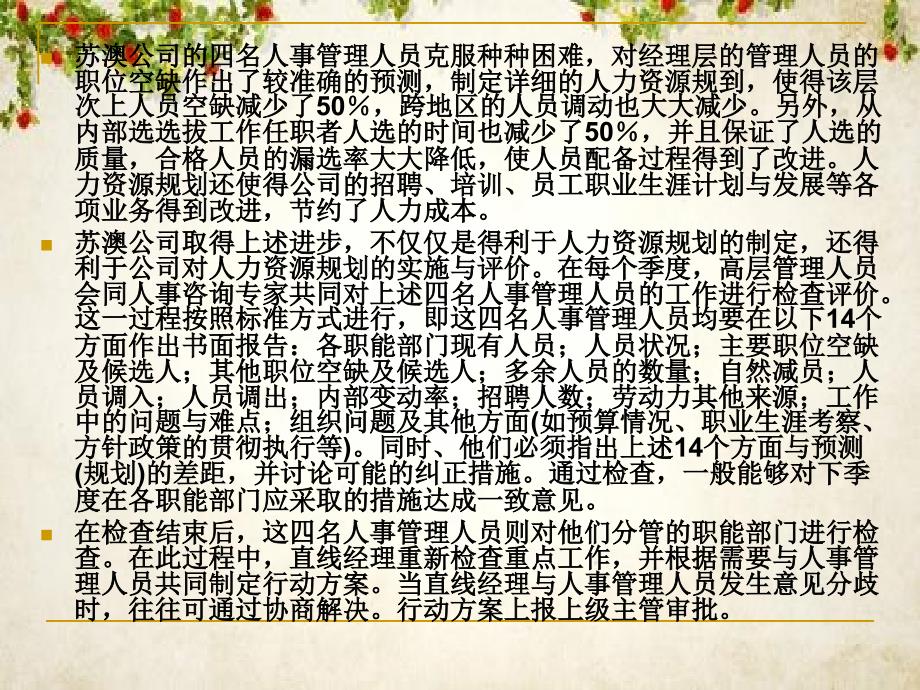 苏澳公司的四名人事管理人员克服种种困难，对经理层的管理人员的
职位空缺作出了较准确的预测，制定详细的人力资源规到，使得该层
次上人员空缺减少了50%，跨地区的人员调动也大大减少。另外，从
内部选选拔工作任职者人选的时间也减少了50%，并且保证了人选的
质量，合格人员的漏选率大大降低，使人员配备过程得到了改进。人
力资源规划还使得公司的招聘、培训、员工职业生涯计划与发展等各
项业务得到改进，节约了人力成本。
苏澳公司取得上述进步，不仅仅是得利于人力资源规划的制定，还得
利于公司对人力资源规划的实施与评价。在每个季度，高层管理人员
会同人事咨询专家共同对上述四名人事管理人员的工作进行检查评价。
这一过程按照标准方式进行，即这四名人事管理人员均要在以下14个
方面作出书面报告：各职能部门现有人员；人员状况；主要职位空缺
及候选人；其他职位空缺及候选人；多余人员的数量；自然减员；人
员调入；人员调出；内部变动率；招聘人数；劳动力其他来源；工作
中的问题与难点；组织问题及其他方面(如预算情况、职业生涯考察、
方针政策的贯彻执行等)。同时、他们必须指出上述14个方面与预测
(规划)的差距，并讨论可能的纠正措施。通过检查，一般能够对下季
度在各职能部门应采取的措施达成一致意见。
在检查结束后，这四名人事管理人员则对他们分管的职能部门进行检
查。在此过程中，直线经理重新检查重点工作，并根据需要与人事管
理人员共同制定行动方案。当直线经理与人事管理人员发生意见分歧
时，往往可通过协商解决。行动方案上报上级主管审批。